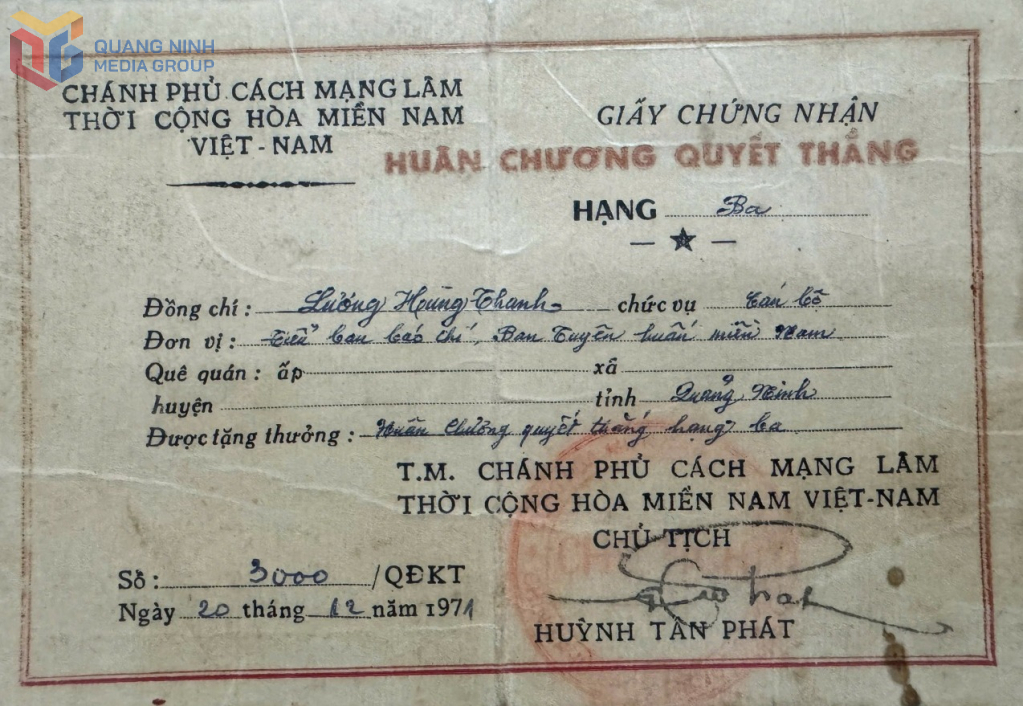 QUANG NINH
MEDIA GROUP
CHÁNH PHỦ CÁCH MẠNG LÂM
THỜI CỘNG HÒA MIỀN NAM
VIỆT-NAM
GIẤY CHỨNG NHẬN
HUÂN CHƯƠNG QUYẾT THẮNG
HẠNG Ba
Đồng chí: Lương Hùng Thanh chức vụ Cán bộ
Đơn vị: Tiểu ban báo chí, Ban Tuyên huấn miền Nam
Quê quán: ấp xã
huyện tỉnh Quảng Ninh
Được tặng thưởng: Huân Chương quyết thắng hạng ba
T.M. CHÁNH PHỦ CÁCH MẠNG LÂM
THỜI CỘNG HÒA MIỀN NAM VIỆT-NAM
CHỦ TỊCH
Số: 3000/QĐKT
Ngày 20 tháng 12 năm 1971
HUỲNH TẤN PHÁT